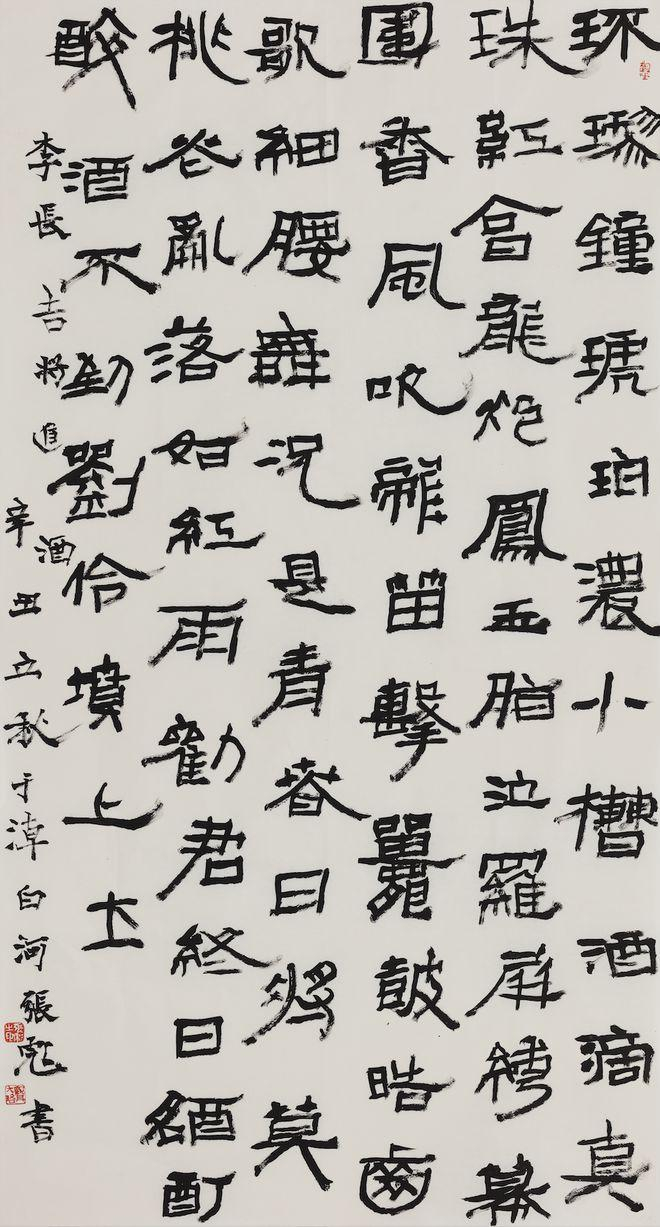 琉璃鐘琥珀濃小槽酒滴真
珠紅烹龍炮鳳玉脂泣羅屏繡幕
圍香風吹龍笛擊鼉鼓皓齒
歌細腰舞況是青春日將莫
桃花亂落如紅雨勸君終日酩酊
醉酒不到劉伶墳上土
李長吉將進酒
辛丑立秋于白河張彪書